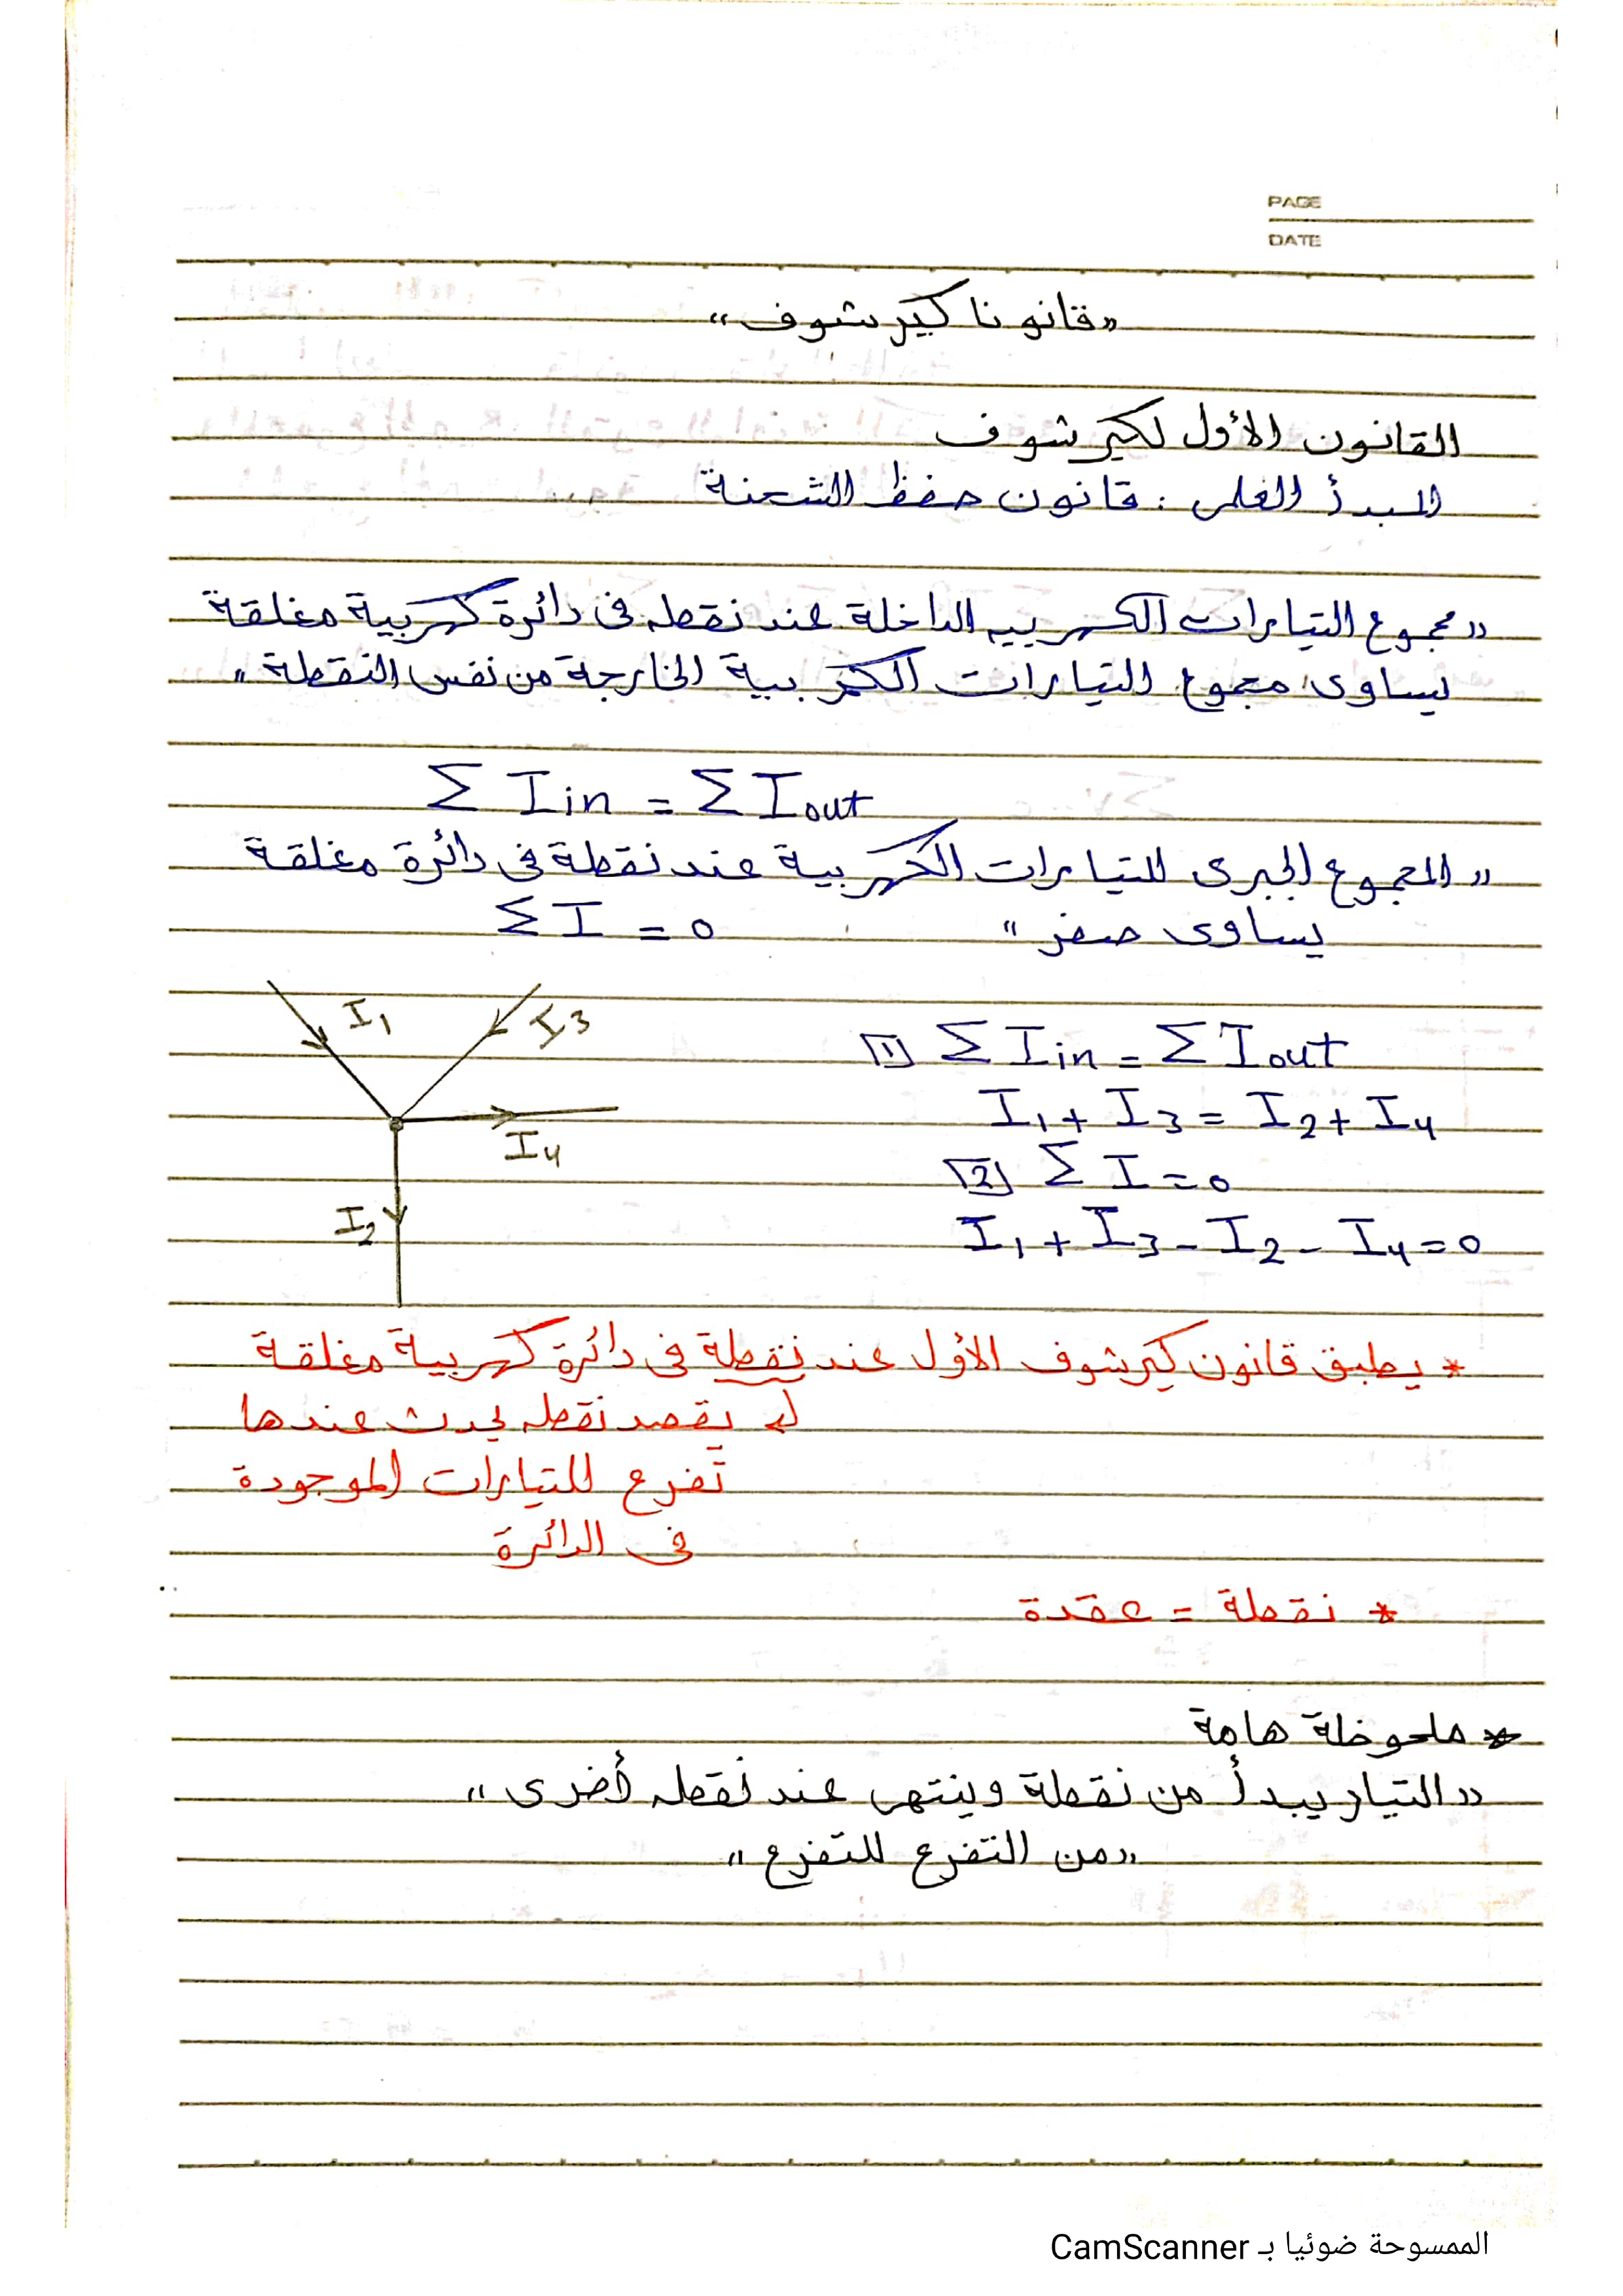 PAGE
DATE
« قانونا كيرشوف »
القانون الأول لكيرشوف
المبدأ العلمى : قانون حفظ الشحنة
« مجموع التيارات الكهربيه الداخلة عند نقطه فى دائرة كهربية مغلقة
يساوى مجموع التيارات الكهربية الخارجة من نفس النقطة »
Σ Iin = Σ Iout
« المجموع الجبرى للتيارات الكهربية عند نقطة فى دائرة مغلقة
يساوى صفر » Σ I = 0
I1 I3
[1] Σ Iin = Σ Iout
I1 + I3 = I2 + I4
I4
[2] Σ I = 0
I2
I1 + I3 - I2 - I4 = 0
* يطبق قانون كيرشوف الأول عند نقطة فى دائرة كهربية مغلقة
يقصد نقطه يحدث عندها
تَفرع للتيارات الموجودة
فى الدائرة
* نقطة = عقدة
* ملحوظة هامة
« التيار يبدأ من نقطة وينتهى عند نقطه أخرى »
« من التفرع للتفرع »
الممسوحة ضوئيا بـ CamScanner